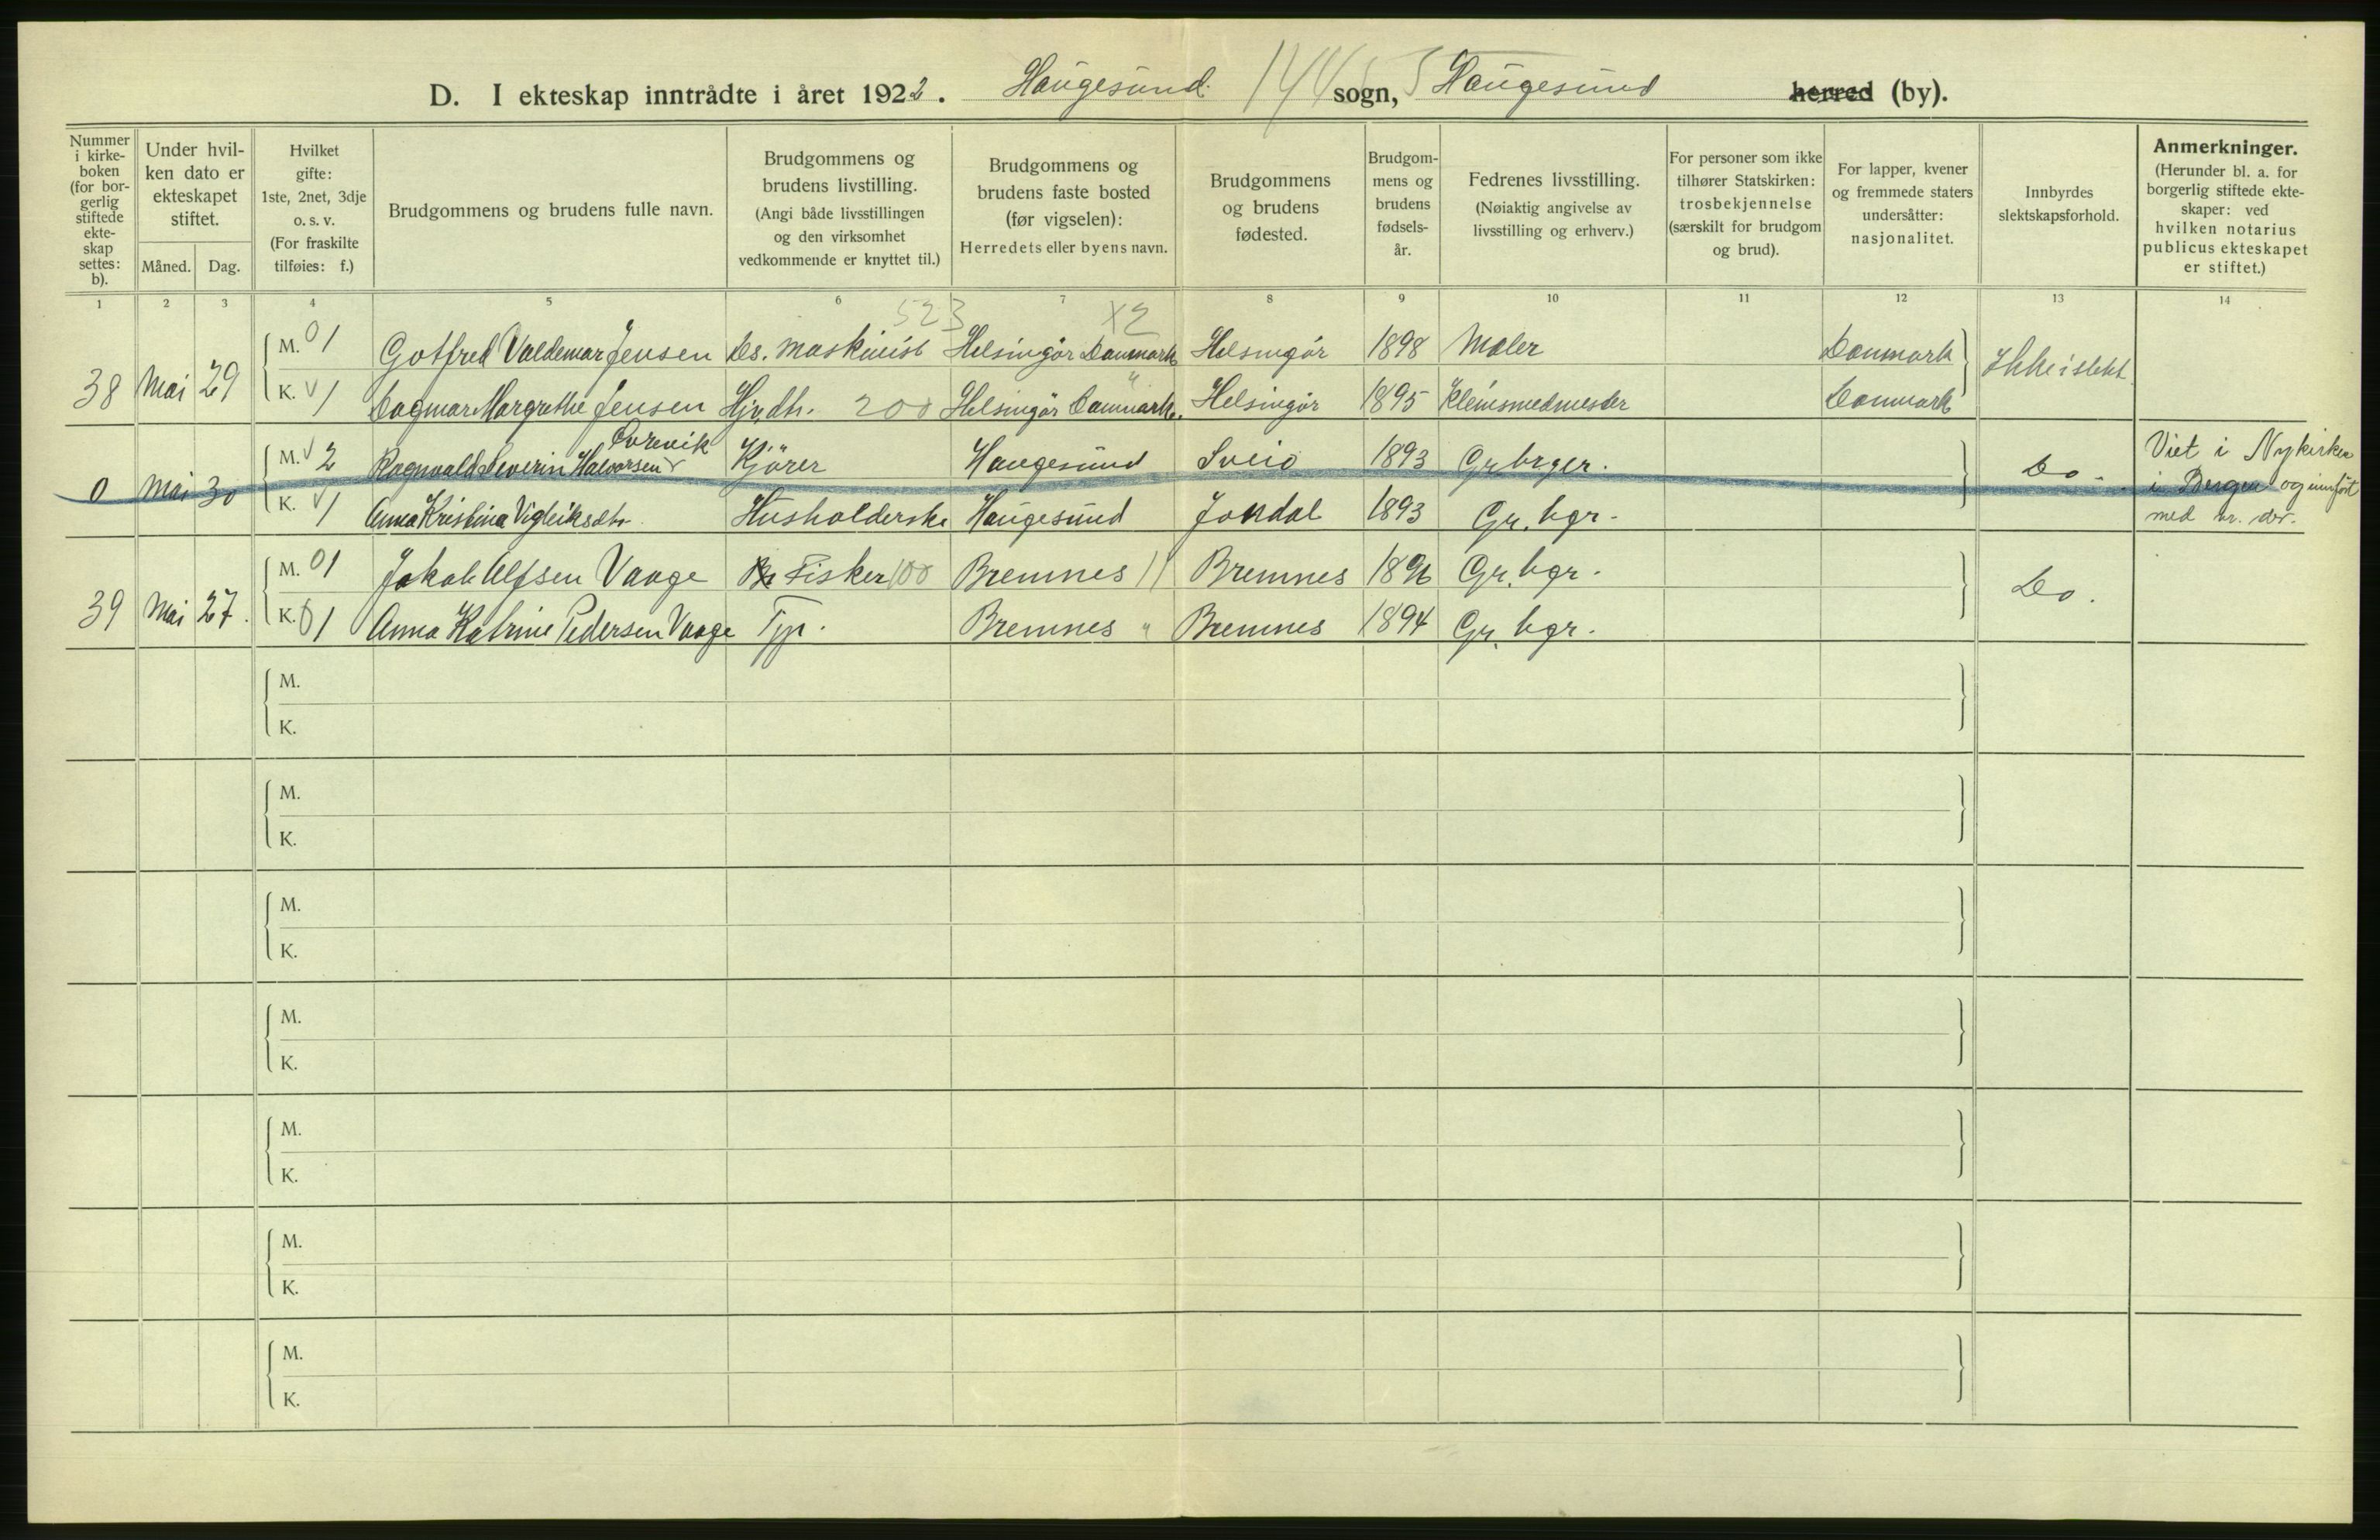 D. I ekteskap inntrådte i året 1922. Haugesund sogn, Haugesund herred (by).
Nummer i kirke- boken (for bor- gerlig stiftede ekte- skap settes: b).
Under hvil- ken dato er ekteskapet stiftet.
Måned. Dag.
Hvilket gifte: 1ste, 2net, 3dje o. s. v. (For fraskilte tilføies: f.)
Brudgommens og brudens fulle navn.
Brudgommens og brudens livstilling. (Angi både livsstillingen og den virksomhet vedkommende er knyttet til.)
Brudgommens og brudens faste bosted (før vigselen): Herredets eller byens navn.
Brudgommens og brudens fødested.
Brudgom- mens og brudens fødsels- år.
Fedrenes livsstilling. (Nøiaktig angivelse av livsstilling og erhverv.)
For personer som ikke tilhører Statskirken: trosbekjennelse (særskilt for brudgom og brud).
For lapper, kvener og fremmede staters undersåtter: nasjonalitet.
Innbyrdes slektskapsforhold.
Anmerkninger. (Herunder bl. a. for borgerlig stiftede ekte- skaper: ved hvilken notarius publicus ekteskapet er stiftet.)
1 2 3 4 5 6 7 8 9 10 11 12 13 14
523 X2
M. 01 Gotfred Valdemar Jensen Ds. maskinist Helsingör Danmark Helsingör 1898 Maler Danmark
38 Mai 29 Ikke i slekt
K. √1 Dagmar Margrethe Jensen Hjv. dtr. 200 Helsingör Danmark Helsingör 1895 Kleinsmedmester Danmark
Tveroik
M. √2 Ragnvald Severin Halvorsen Kjörer Haugesund Sveio 1893 Grbrger.
0 Mai 30 Do
K. √1 Anna Kristina Vigleiksdtr. Husholderske Haugesund Jondal 1893 Gr. bgr.
Viet i Nykirken
i Bergen og innfört
med nr. der.
M. 01 Jakob Alfsen Vaage Fisker 100 Bremnes 11 Bremnes 1896 Gr. bgr.
39 Mai 27. Do.
K. 01 Anna Katrine Pedersen Vaage Tjp. Bremnes " Bremnes 1894 Gr. bgr.
M.
K.
M.
K.
M.
K.
M.
K.
M.
K.
M.
K.
M.
K.